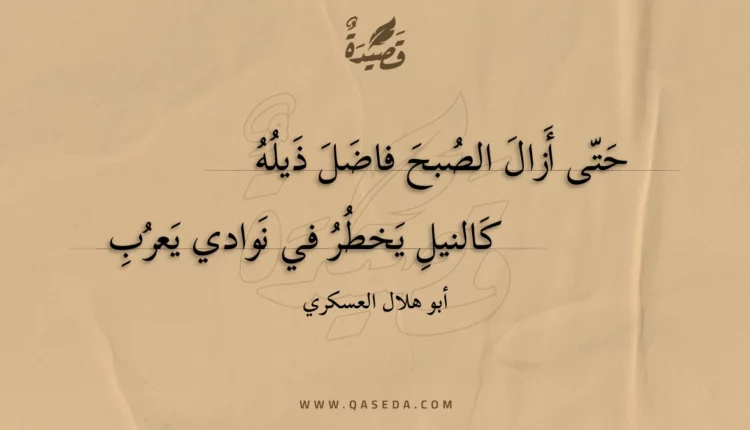 قَصِيدَةٌ
حَتّى أَزالَ الصُبحَ فاضَلَ ذَيلُهُ
كَالنيلِ يَخطُرُ في نَوادي يَعرُبِ
أبو هلال العسكري
WWW.QASEDA.COM